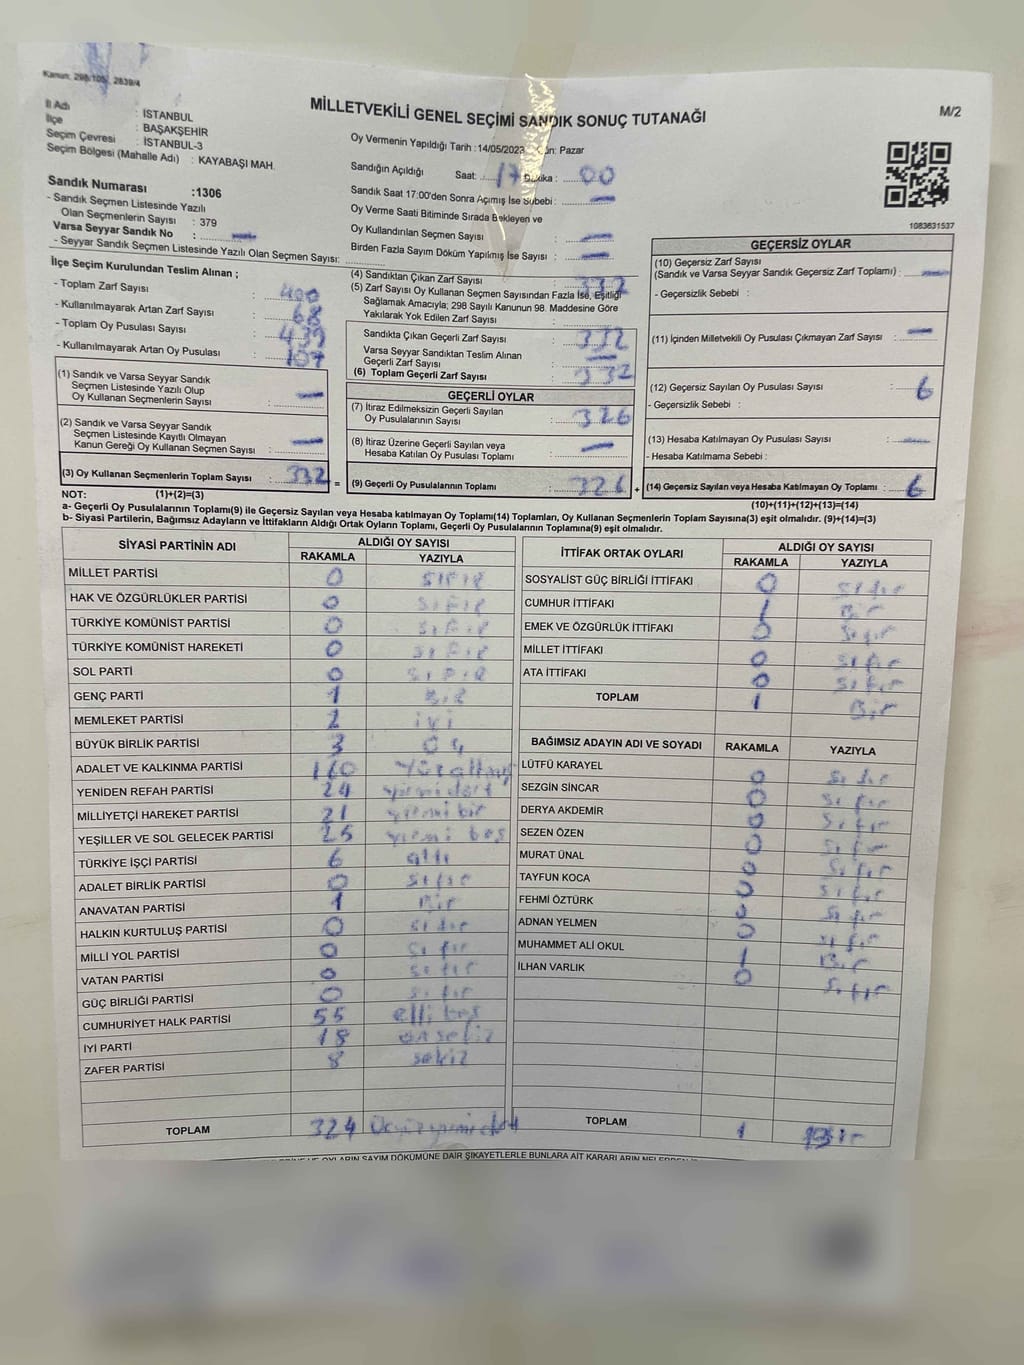 Kanun: 298/105, 2839/4
MİLLETVEKİLİ GENEL SEÇİMİ SANDIK SONUÇ TUTANAĞI
M/2
İl Adı : İSTANBUL
İlçe : BAŞAKŞEHİR
Seçim Çevresi : İSTANBUL-3
Seçim Bölgesi (Mahalle Adı) : KAYABAŞI MAH.
Sandık Numarası :1306
- Sandık Seçmen Listesinde Yazılı
Olan Seçmenlerin Sayısı : 379
Varsa Seyyar Sandık No : —
- Seyyar Sandık Seçmen Listesinde Yazılı Olan Seçmen Sayısı:
Oy Vermenin Yapıldığı Tarih :14/05/2023 Gün: Pazar
Sandığın Açıldığı Saat: 17 Dakika : 00
Sandık Saat 17:00'den Sonra Açımış İse Sebebi : —
Oy Verme Saati Bitiminde Sırada Bekleyen ve
Oy Kullandırılan Seçmen Sayısı : —
Birden Fazla Sayım Döküm Yapılmış İse Sayısı : —
1083631537
İlçe Seçim Kurulundan Teslim Alınan ;
- Toplam Zarf Sayısı : 400
- Kullanılmayarak Artan Zarf Sayısı : 68
- Toplam Oy Pusulası Sayısı : 439
- Kullanılmayarak Artan Oy Pusulası : 107
(1) Sandık ve Varsa Seyyar Sandık
Seçmen Listesinde Yazılı Olup
Oy Kullanan Seçmenlerin Sayısı : —
(2) Sandık ve Varsa Seyyar Sandık
Seçmen Listesinde Kayıtlı Olmayan
Kanun Gereği Oy Kullanan Seçmen Sayısı : —
(3) Oy Kullanan Seçmenlerin Toplam Sayısı : 332 =
(4) Sandıktan Çıkan Zarf Sayısı : 332
(5) Zarf Sayısı Oy Kullanan Seçmen Sayısından Fazla İse, Eşitliği
Sağlamak Amacıyla; 298 Sayılı Kanunun 98. Maddesine Göre
Yakılarak Yok Edilen Zarf Sayısı :
Sandıkta Çıkan Geçerli Zarf Sayısı : 332
Varsa Seyyar Sandıktan Teslim Alınan
Geçerli Zarf Sayısı : —
(6) Toplam Geçerli Zarf Sayısı : 332
GEÇERLİ OYLAR
(7) İtiraz Edilmeksizin Geçerli Sayılan
Oy Pusulalarının Sayısı : 326
(8) İtiraz Üzerine Geçerli Sayılan veya
Hesaba Katılan Oy Pusulası Toplamı : —
(9) Geçerli Oy Pusulalarının Toplamı : 326 +
GEÇERSİZ OYLAR
(10) Geçersiz Zarf Sayısı
(Sandık ve Varsa Seyyar Sandık Geçersiz Zarf Toplamı) : —
- Geçersizlik Sebebi :
(11) İçinden Milletvekili Oy Pusulası Çıkmayan Zarf Sayısı : —
(12) Geçersiz Sayılan Oy Pusulası Sayısı : 6
- Geçersizlik Sebebi :
(13) Hesaba Katılmayan Oy Pusulası Sayısı : —
- Hesaba Katılmama Sebebi :
(14) Geçersiz Sayılan veya Hesaba Katılmayan Oy Toplamı : 6
NOT: (1)+(2)=(3)
(10)+(11)+(12)+(13)=(14)
a- Geçerli Oy Pusulalarının Toplamı(9) ile Geçersiz Sayılan veya Hesaba katılmayan Oy Toplamı(14) Toplamları, Oy Kullanan Seçmenlerin Toplam Sayısına(3) eşit olmalıdır. (9)+(14)=(3)
b- Siyasi Partilerin, Bağımsız Adayların ve İttifakların Aldığı Ortak Oyların Toplamı, Geçerli Oy Pusulalarının Toplamına(9) eşit olmalıdır.
SİYASİ PARTİNİN ADI ALDIĞI OY SAYISI
RAKAMLA YAZIYLA
MİLLET PARTİSİ 0 SIFIR
HAK VE ÖZGÜRLÜKLER PARTİSİ 0 SIFIR
TÜRKİYE KOMÜNİST PARTİSİ 0 SIFIR
TÜRKİYE KOMÜNİST HAREKETİ 0 SIFIR
SOL PARTİ 0 SIFIR
GENÇ PARTİ 1 BİR
MEMLEKET PARTİSİ 2
BÜYÜK BİRLİK PARTİSİ 3 üç
ADALET VE KALKINMA PARTİSİ 160 Yüzaltmış
YENİDEN REFAH PARTİSİ 24 yirmidört
MİLLİYETÇİ HAREKET PARTİSİ 21 yirmi bir
YEŞİLLER VE SOL GELECEK PARTİSİ 25 yirmi beş
TÜRKİYE İŞÇİ PARTİSİ 6 altı
ADALET BİRLİK PARTİSİ 0 sıfır
ANAVATAN PARTİSİ 1 Bir
HALKIN KURTULUŞ PARTİSİ 0 sıfır
MİLLİ YOL PARTİSİ 0 sıfır
VATAN PARTİSİ 0 sıfır
GÜÇ BİRLİĞİ PARTİSİ 0 sıfır
CUMHURİYET HALK PARTİSİ 55 elli beş
İYİ PARTİ 18 on sekiz
ZAFER PARTİSİ 8 sekiz
TOPLAM 324 Üçyüzyirmidört
İTTİFAK ORTAK OYLARI ALDIĞI OY SAYISI
RAKAMLA YAZIYLA
SOSYALİST GÜÇ BİRLİĞİ İTTİFAKI 0 sıfır
CUMHUR İTTİFAKI 1 Bir
EMEK VE ÖZGÜRLÜK İTTİFAKI 0 sıfır
MİLLET İTTİFAKI 0 sıfır
ATA İTTİFAKI 0 sıfır
TOPLAM 1 Bir
BAĞIMSIZ ADAYIN ADI VE SOYADI RAKAMLA YAZIYLA
LÜTFÜ KARAYEL 0 sıfır
SEZGİN SİNCAR 0 sıfır
DERYA AKDEMİR 0 sıfır
SEZEN ÖZEN 0 sıfır
MURAT ÜNAL 0 sıfır
TAYFUN KOCA 0 sıfır
FEHMİ ÖZTÜRK 0 sıfır
ADNAN YELMEN 0 sıfır
MUHAMMET ALİ OKUL 1 Bir
İLHAN VARLIK 0 sıfır
TOPLAM 1 Bir
OYLARIN SAYIM DÖKÜMÜNE DAİR ŞİKAYETLERLE BUNLARA AİT KARARLARIN